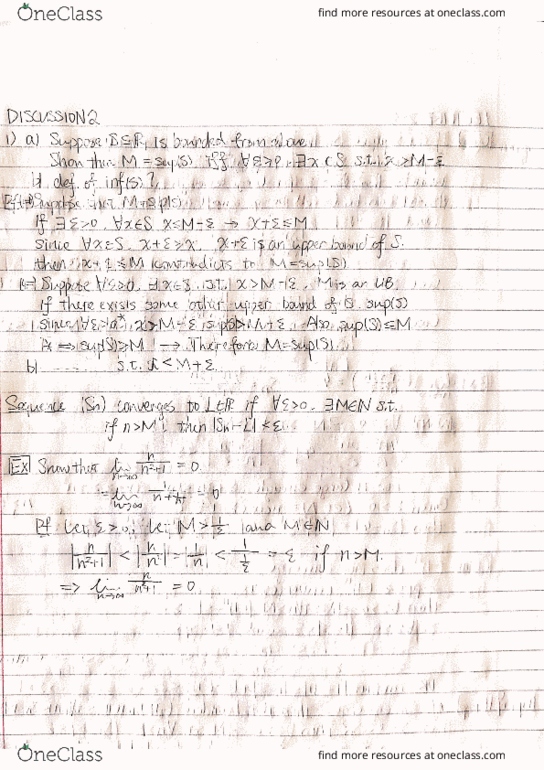 OneClass
find more resources at oneclass.com
DISCUSSION 2
1) a) Suppose S⊆ℝ is bounded from above.
Show that M = sup(S) iff ∀ε>0, ∃x∈S s.t. x>M-ε
b) def. of inf(S)?
Pf (⇒) Suppose that M=sup(S)
If ∃ε>0, ∀x∈S x≤M-ε → x+ε≤M
since ∀x∈S, x+ε>x, x+ε is an upper bound of S.
then x+ε≤M (contradicts to M=sup(S))
(⇐) Suppose ∀ε>0, ∃x∈S, s.t. x>M-ε, M is an UB
If there exists some other upper bound of sup(S)
since ∀ε>0, x>M-ε Also sup(S)≤M
⇒ sup(S)≥M → Therefore M=sup(S).
b) s.t. x<M+ε
Sequence (Sn) converges to L∈ℝ if ∀ε>0, ∃M∈ℕ s.t.
if n>M, then |Sn-L|<ε
EX Show that lim n→∞ n/(n²+1) = 0
= lim n→∞ = 0
Pf Let ε>0, let M>1/ε and M∈ℕ
|n/(n²+1)| < |n/n²| = 1/n < 1/(1/ε) = ε if n>M
⇒ lim n→∞ n/(n²+1) = 0
OneClass
find more resources at oneclass.com